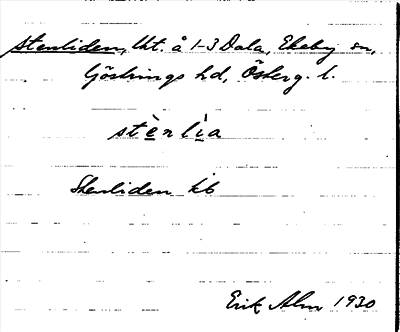 Stenliden, lht. å 1-3 Dala, Ekeby sn,
Göstrings hd, Österg. l.
stènlìa
Stenliden kb
Erik Alm 1930